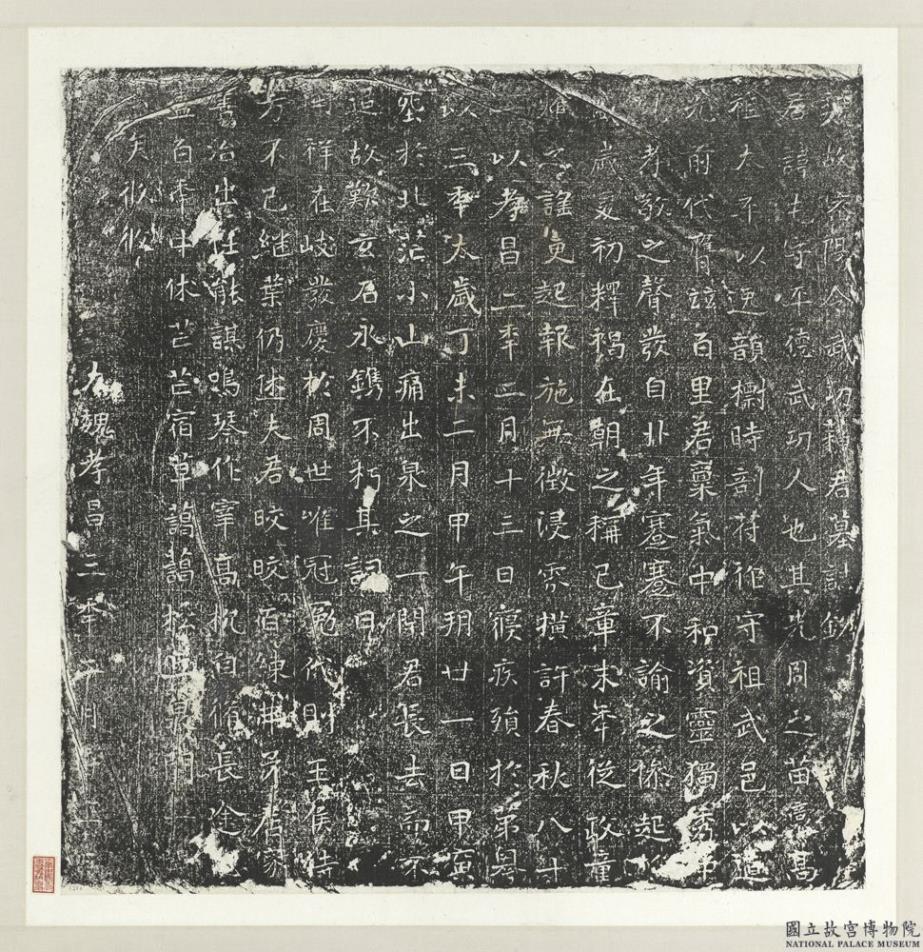 魏故宋陽令武功蘇君墓誌銘
君諱屯字平德武功人也其先周之苗高
祖夫不以逸韻檦時剖符祚守祖武邑以道
光前代胄玆百里君稟氣中和資靈獨秀
孝敬之聲發自丱年蹇蹇不諭之操起
歲爰初釋褐在朝之稱已章末年從政童
之謡奠起報施無徵浸雰撗許春秋八十
一以孝昌二年二月十三日寢疾殞於第粤
以三年太歲丁未二月甲午朔廿一日甲寅
窆於北芒小山痛出泉之一閇君長去而不
追故歎玄石永鐫不朽其詞曰
祥在岐發慶於周世唯冠冕代則王侯待
方不已継葉仍述夫君皎皎百練冄矛居家
書治出任能謀鳴琴作宰高枕自脩長途
五百年中休芒芒宿草藹藹松
夫脩脩
大魏孝昌三年二月
國立故宮博物院
NATIONAL PALACE MUSEUM